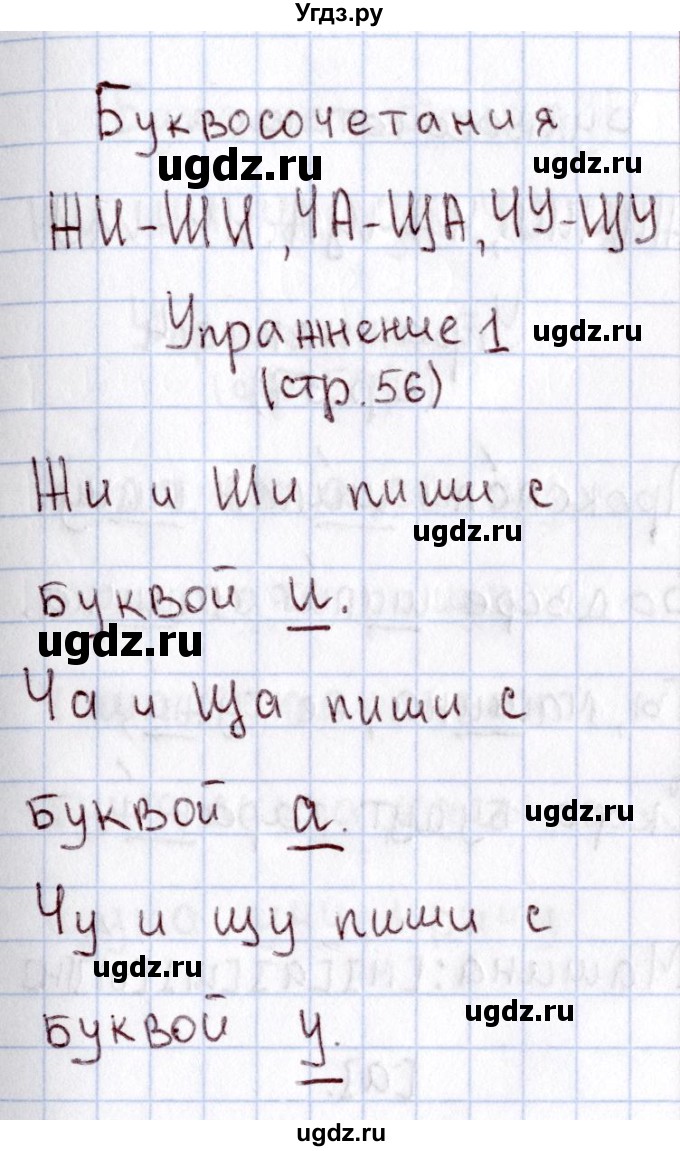 Угдз.ру
Буквосочетания
ugdz.ru ugdz.ru
ЖИ-ШИ, ЧА-ЩА, ЧУ-ЩУ
Упражнение 1 ugdz.ru
(стр. 56)
Жи и Ши пиши с
ugdz.ru
буквой и.
ugdz.ru
Ча и Ща пиши с
буквой а. ugdz.ru
Чу и щу пиши с
ugdz.ru
буквой у. ugdz.ru
ugdz.ru